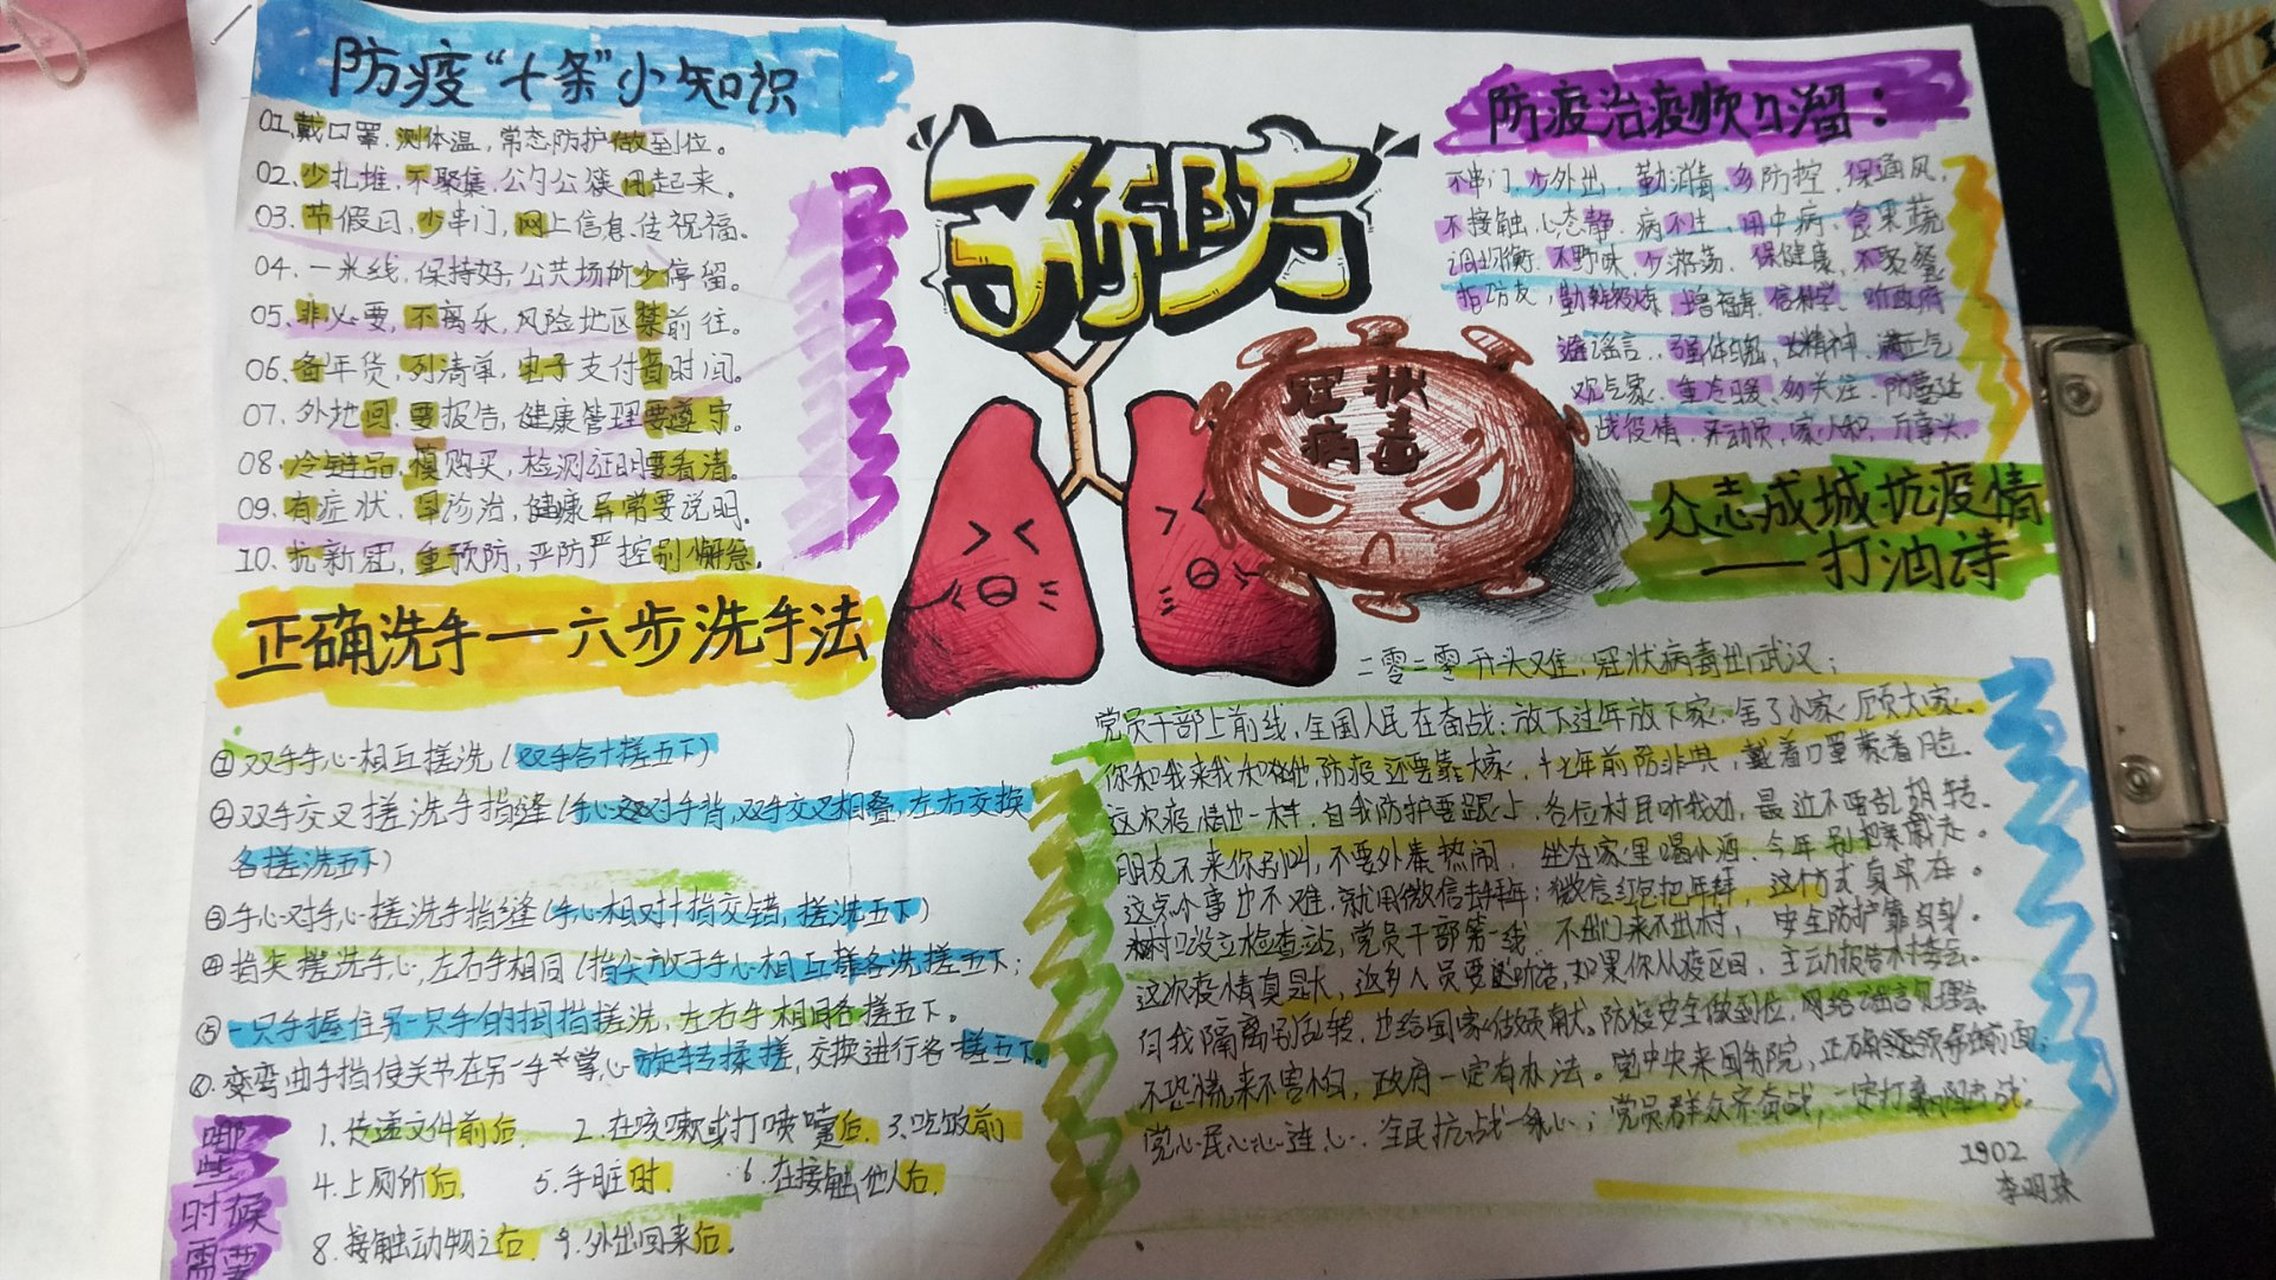 防疫“十条”小知识
01.戴口罩.测体温,常态防护做到位。
02.少扎堆.不聚集.公勺公筷用起来。
03.节假日,少串门,网上信息传祝福。
04.一米线,保持好,公共场所少停留。
05.非必要,不离乐,风险地区禁前往。
06.备年货,列清单,电子支付省时间。
07.外地回.要报告,健康管理要遵守。
08.冷链品.慎购买,检测证明要看清。
09.有症状.早诊治,健康异常要说明.
10.抗新冠,重预防,严防严控别懈怠。
正确洗手—六步洗手法
①双手手心相互搓洗(双手合十搓五下)
②双手交叉搓洗手指缝(手心对手背,双手交叉相叠,左右交换
各搓洗五下)
③手心对手心搓洗手指缝(手心相对十指交错,搓洗五下)
④指尖搓洗手心,左右手相同(指尖放于手心相互搓各洗搓五下;
⑤一只手握住另一只手的拇指搓洗,左右手相同各搓五下。
⑥.弯曲手指使关节在另一手掌心旋转揉搓,交换进行各搓五下。
哪些时候需要
1.传递文件前后. 2.在咳嗽或打喷嚏后. 3.吃饭前
4.上厕所后. 5.手脏时. 6.在接触他人后.
8.接触动物之后. 9.外出回来后.
预防
冠状
病毒
防疫治疫顺口溜:
不串门.少外出.勤消毒.多防控.保通风.
不接触.心态静.病不生.用中病.食果蔬
调均衡.不野味.少游荡.保健康.不聚餐
拒访友,勤锻炼.增福寿.信科学.听政府
谣言..强体魄.长精神.满正气
吹气家.重点暖.多关注.防蔓延
战役情.齐动员,家人和,万事兴.
众志成城抗疫情
——打油诗
二零二零开头难,冠状病毒出武汉;
党员干部上前线,全国人民在奋战;放下过年放下家.舍了小家顾大家.
你和我来我和他,防疫还要靠大家.十七年前防非典,戴着口罩蒙着脸.
这次疫情也一样.自我防护要跟上.各位村民听我劝,最近不要乱胡转.
朋友不来你别叫,不要外奏热闹.坐在家里喝小酒.今年别把亲戚走。
这点小事也不难.就用微信去拜年:微信红包把年拜,这个方式真实在。
村口设立检查站,党员干部第一线.不出门来不出村,安全防护靠自身.
这次疫情真是大,返乡人员要听话,如果你从疫区回.主动报告村委会.
自我隔离别乱转,也给国家做贡献.防疫安全做到位.网络谣言别理会.
不恐慌来不害怕,政府一定有办法。党中央来国务院,正确领导在前面,
党心民心心连心.全民抗战一条心;党员群众齐奋战,一定打赢阻击战.
1902
李明珠